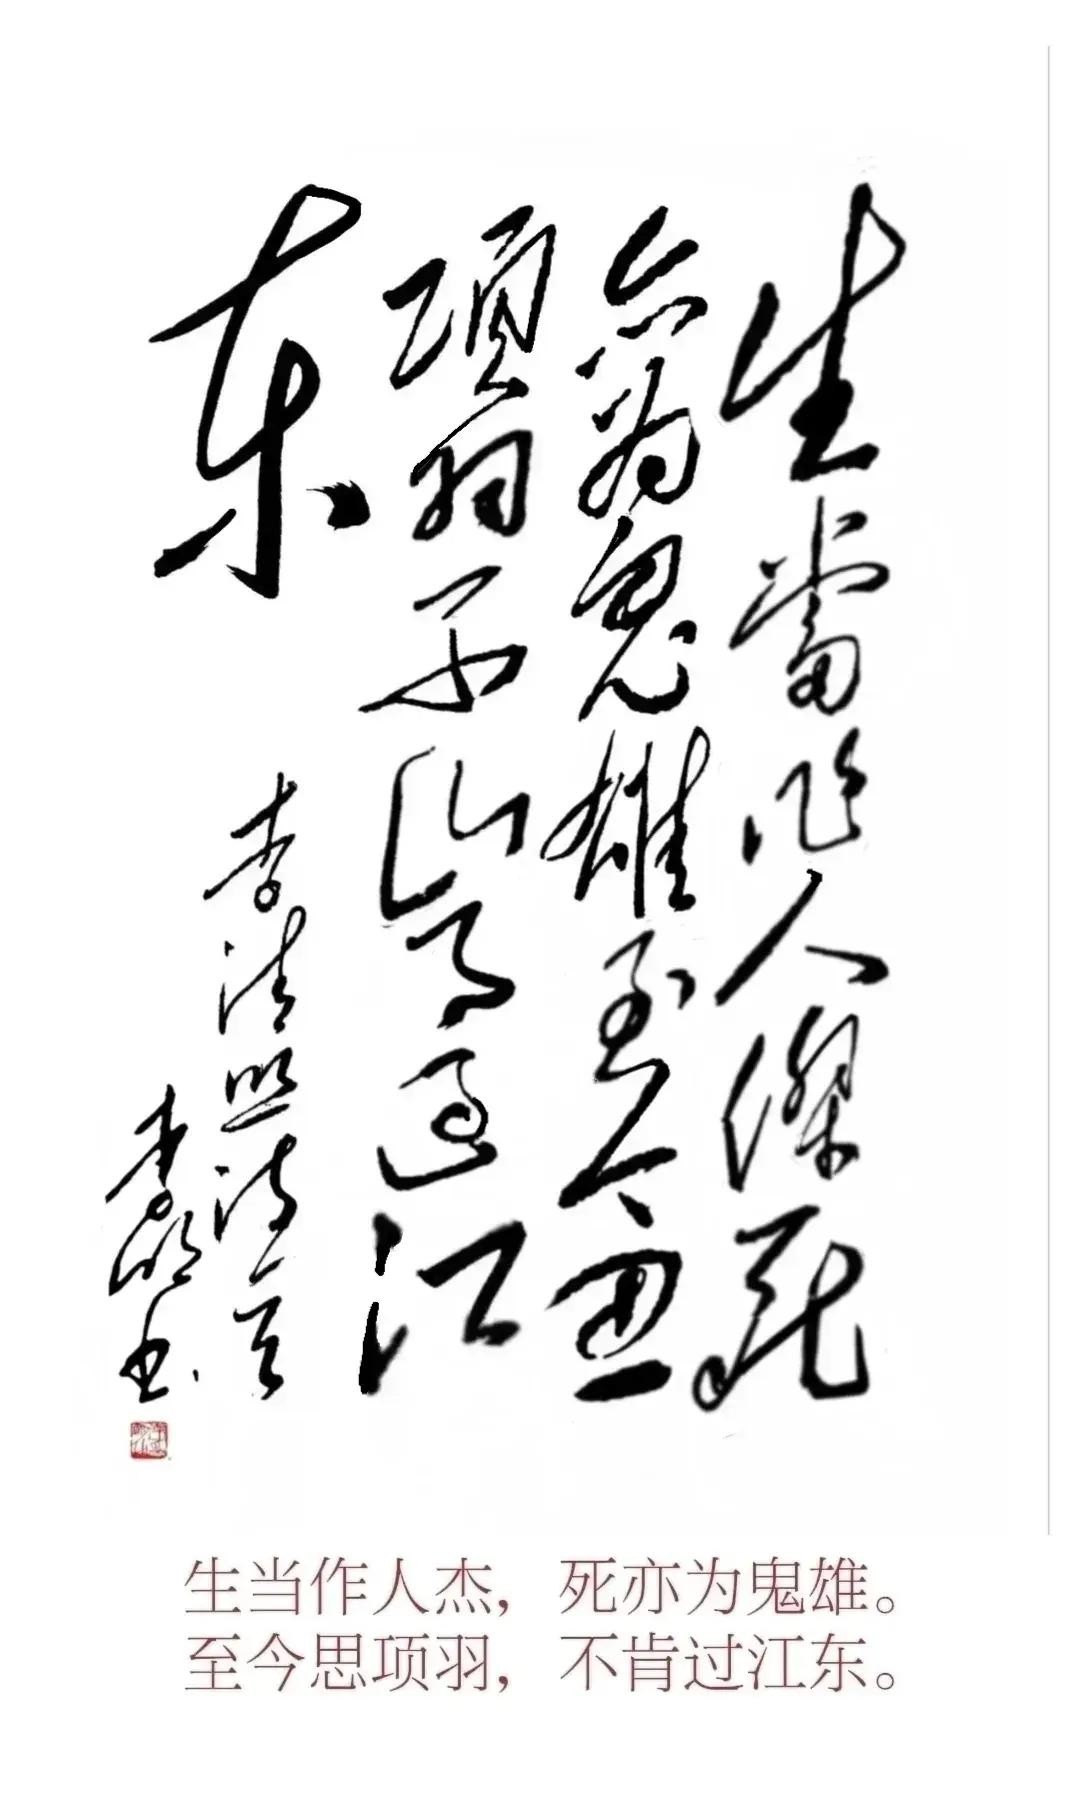 生當作人傑死
亦為鬼雄至今思
項羽不肯過江
东
李清照诗意
李明书
生当作人杰，死亦为鬼雄。
至今思项羽，不肯过江东。